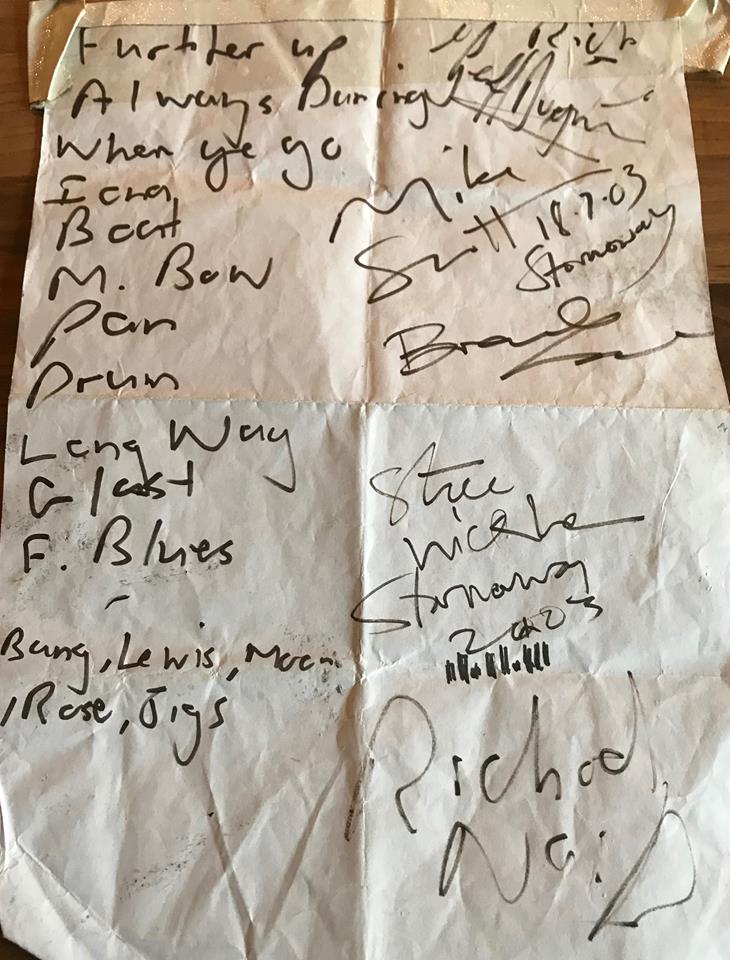 Further up
Always Dancing
When ye go
Iona
Boat
M. Bow
Pan
Drum
Long Way
Glast
F. Blues
-
Bang, Lewis, Moon
/Rose, Jigs
Rich
Mike
Scott 18.7.03
Stornoway
Brad
Steve
Wickham
Stornoway
2003
Richard
Nai